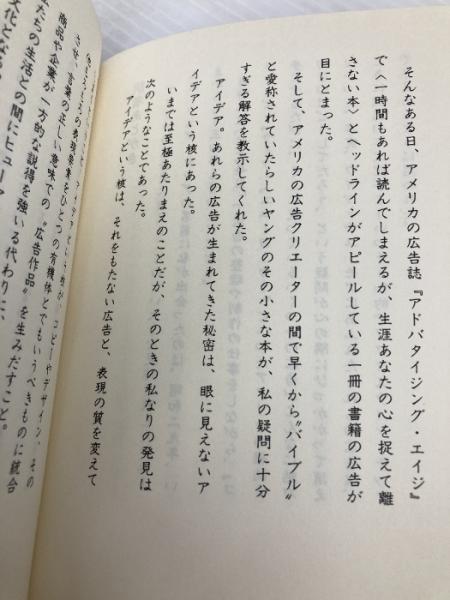 そんなある日、アメリカの広告誌『アドバタイジング・エイジ』
で〈一時間もあれば読んでしまえるが、生涯あなたの心を捉えて離
さない本〉とヘッドラインがアピールしている一冊の書籍の広告が
目にとまった。
そして、アメリカの広告クリエーターの間で早くから〝バイブル〟
と愛称されていたらしいヤングのその小さな本が、私の疑問に十分
すぎる解答を教示してくれた。
アイデア。あれらの広告が生まれてきた秘密は、眼に見えないア
イデアという核にあった。
いまでは至極あたりまえのことだが、そのときの私なりの発見は
次のようなことであった。
アイデアという核は、それをもたない広告と、表現の質を変えて
コピーやデザイン、その
の表現要素をひとつの有機体とでもいうべきものに統合
させ、言葉の正しい意味での〝広告作品〟を生みだすこと。
商品や企業が一方的な説得を強いる代わりに、
たちの生活との間にヒューマ
文化となる